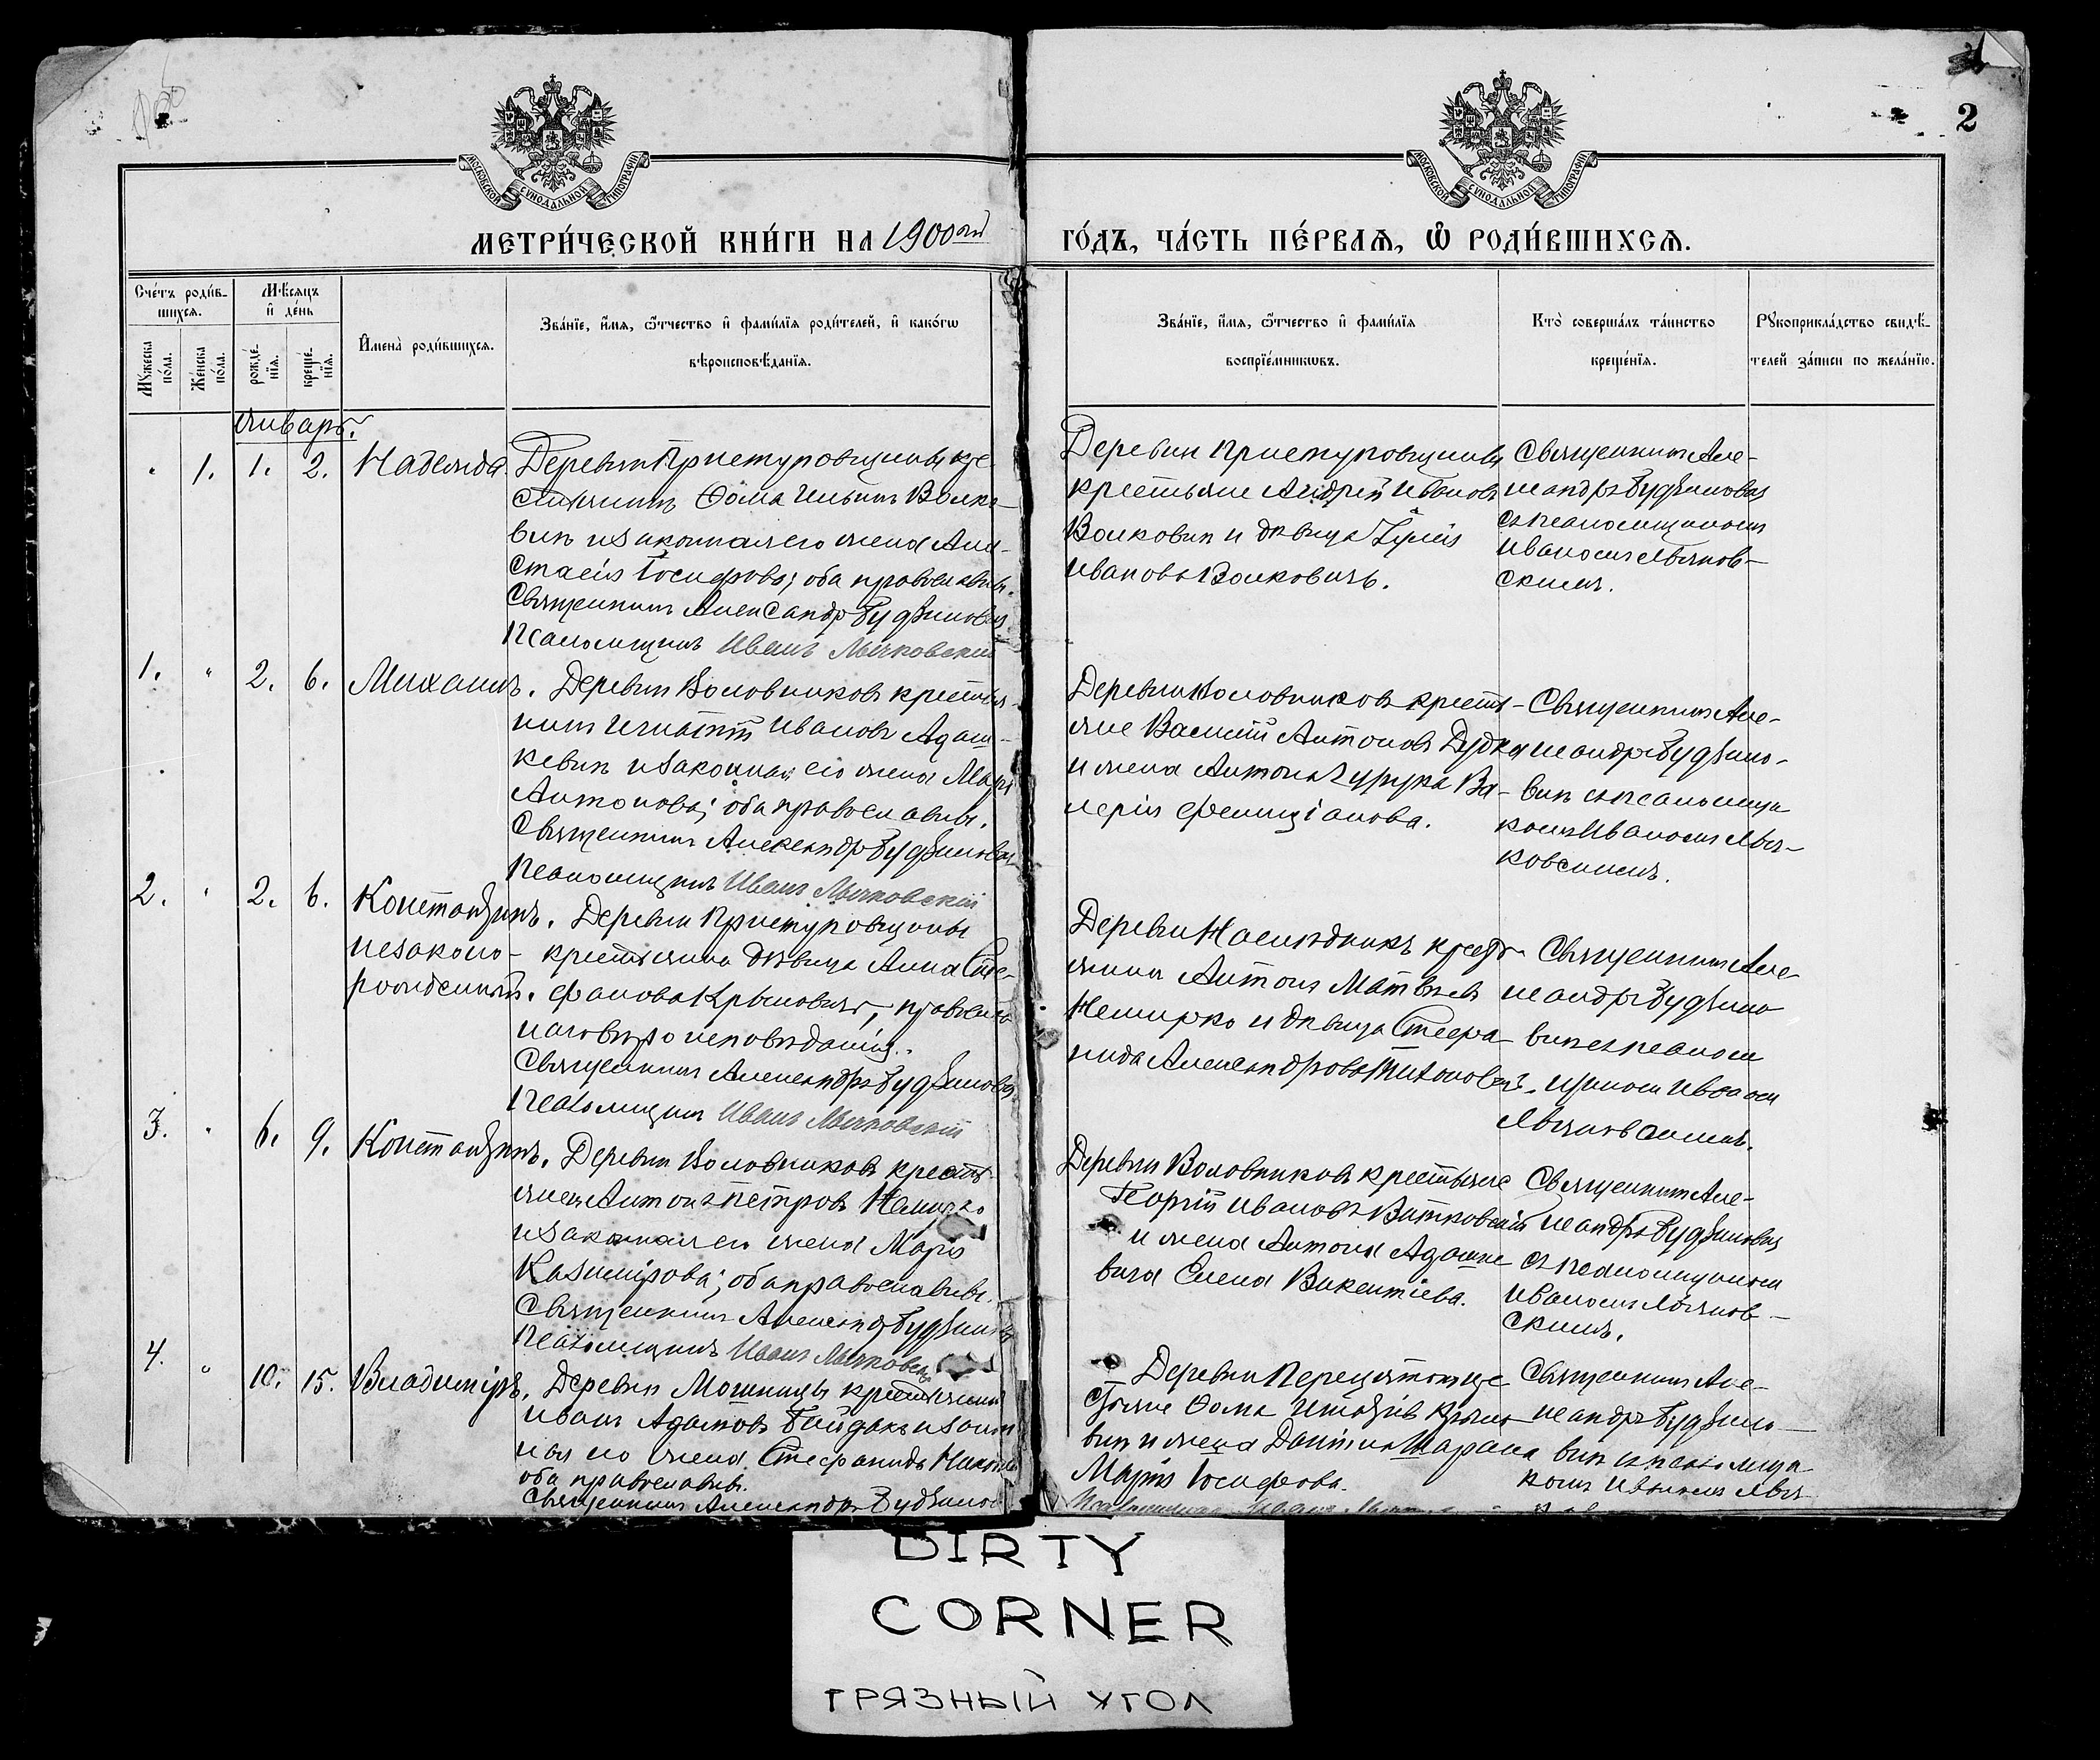 2
МОСКОВСКОЙ СѴНОДАЛЬНОЙ ТИПОГРАФІИ
МОСКОВСКОЙ СѴНОДАЛЬНОЙ ТИПОГРАФІИ
МЕТРИ́ЧЕСКОЙ КНИ́ГИ НА 1900ый
ГО́ДЪ, ЧА́СТЬ ПЕ́РВАѦ, Ѡ҆ РОДИ́ВШИХСѦ.
Сче́тъ роди́в-
шихсѧ.
Мѣ́сѧцъ
и҆ де́нь
Мꙋ́жеска по́ла.
Же́нска по́ла.
рожде́-
нїѧ.
креще́-
нїѧ.
И҆мена̀ роди́вшихсѧ.
Зва́нїе, и҆́мѧ, ѻ҆́тчество и҆ фами́лїѧ роди́телей, и҆ како́гѡ
вѣроисповѣ́данїѧ.
Зва́нїе, и҆́мѧ, ѻ҆́тчество и҆ фами́лїѧ
воспрїе́мникѡвъ.
Кто̀ соверша́лъ та́инство
креще́нїѧ.
Рꙋкоприкла́дство свидѣ́-
телей за́писи по жела́нїю.
Январь.
" 1. 1. 2. Надежда
Деревни Приступовщины кре-
стьянинъ Ѳома Ильинъ Волко-
вичъ и законная его жена Ана-
стасія Іосифова; оба православн.
Священникъ Александръ Будзиловичъ
Псаломщикъ Иванъ Мычковскій
Деревни Приступовщины
крестьяне Андрей Ивановъ
Волковичъ и дѣвица Іулія
Иванова Волковичъ.
Священникъ Але-
ксандръ Будзиловичъ
съ псаломщикомъ
Иваномъ Мычков-
скимъ.
1. " 2. 6. Михаилъ.
Деревни Воловниковъ крестья-
нинъ Игнатій Ивановъ Адаш-
кевичъ и законная его жена Марія
Антонова; оба православн.
Священникъ Александръ Будзиловичъ
Псаломщикъ Иванъ Мычковскій
Деревни Воловниковъ кресть-
яне Василій Антоновъ Дудка
и жена Антона Ва-
лерія Фелиціанова.
Священникъ Але-
ксандръ Будзило-
вичъ съ псаломщи-
комъ Иваномъ Мыч-
ковскимъ.
2. " 2. 6. Константинъ.
незаконо-
рожденный.
Деревни Приступовщины
крестьянка дѣвица Анна Сте-
фанова Крыловичъ, православ-
наго вѣроисповѣданія.
Священникъ Александръ Будзиловичъ
Псаломщикъ Иванъ Мычковскій
Деревни кресть-
янинъ Антонъ Матвѣевъ
Немирко и дѣвица Стефа-
нида Александрова
Священникъ Але-
ксандръ Будзило-
вичъ съ псалом-
щикомъ Иваномъ
Мычковскимъ.
3. " 6. 9. Константинъ.
Деревни Воловниковъ кресть-
янинъ Антонъ Петровъ Немирко
и законная его жена Марія
Казимірова; оба православн.
Священникъ Александръ Будзиловичъ
Псаломщикъ Иванъ Мычковскій
Деревни Воловниковъ крестьяне
Георгій Ивановъ Витковскій
и жена Антона Адашке-
вича Елена Викентіева.
Священникъ Але-
ксандръ Будзиловичъ
съ псаломщикомъ
Иваномъ Мычков-
скимъ.
4. " 10. 15. Владиміръ.
Деревни Мошницы крестьянинъ
Иванъ Адамовъ Байдакъ и закон-
ная его жена Стефанида
оба православн.
Священникъ Александръ Будзиловичъ
Деревни
Ѳома
вичъ и жена
Марія Іосифова.
Псаломщикъ Иванъ
Священникъ Але-
ксандръ Будзило-
вичъ съ псаломщи-
комъ Иваномъ Мыч-
DIRTY
CORNER
ГРЯЗНЫЙ УГОЛ